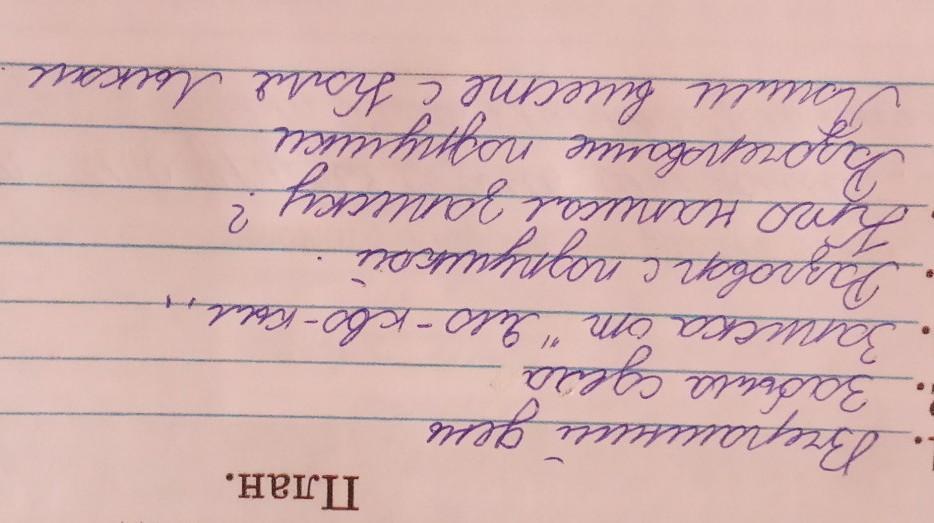 План.
Вчерашний день
Забыла сдела
Записка от "Яло-кво-кыл"
Разговор с подружкой.
Кто написал записку?
Разочерование подружки
Пошли вместе с Колей Лыкои